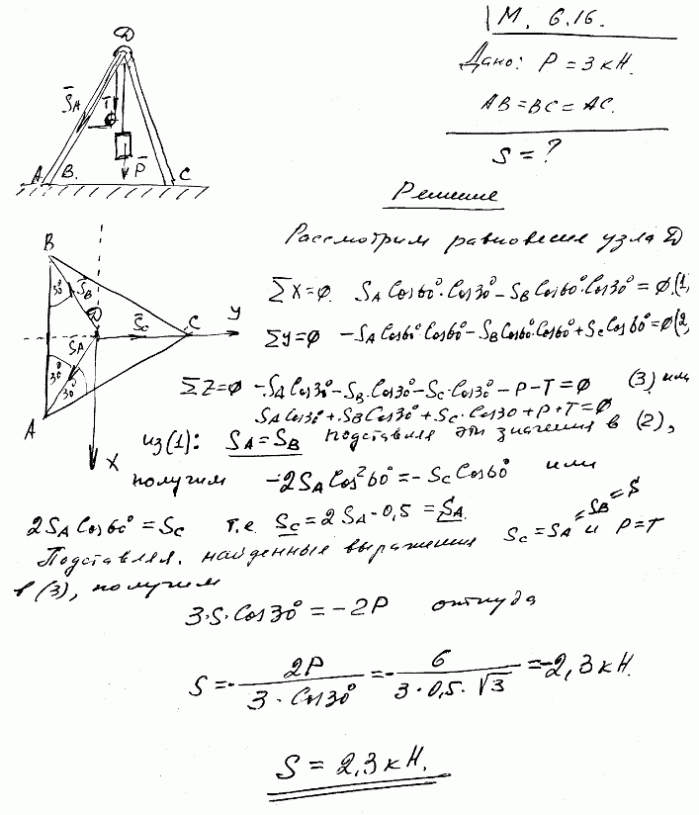 М. 6.16.
Дано: P = 3 кН.
AB = BC = AC.
S = ?
Решение
D
S̄A
T
A B. P̄ C
Рассмотрим равновесие узла D
B
30° S̄B
D S̄c C y
SA
30° 30°
A
X
ΣX=0. SA Cos60°·Cos30° – SB Cos60°·Cos30° = 0. (1)
ΣY=0 –SA Cos60° Cos60° – SB Cos60° Cos60° + Sc Cos60° = 0 (2,
ΣZ=0 –SA Cos30° – SB·Cos30° – Sc·Cos30° – P – T = 0 (3) или
SA Cos30° + SB Cos30° + Sc·Cos30 + P + T = 0
из (1): SA = SB подставляя эти значения в (2),
получим –2SA Cos²60° = –Sc Cos60° или
2SA Cos60° = Sc т.е. Sc = 2SA·0,5 = SA.
Подставляя. найденные выражения Sc = SA = SB = S и P = T
в (3), получим
3·S·Cos30° = –2P откуда
S = – 2P / 3·Cos30° = – 6 / 3·0,5·√3 = –2,3 кН.
S = 2,3 кН.